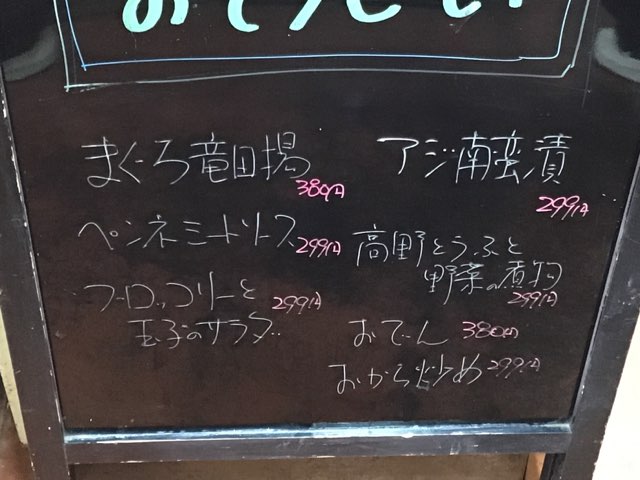 まぐろ竜田揚
389円
ペンネミートソース
299円
ブロッコリーと
玉子のサラダ
299円
アジ南蛮漬
299円
高野とうふと
野菜の煮物
299円
おでん 380円
おから炒め 299円